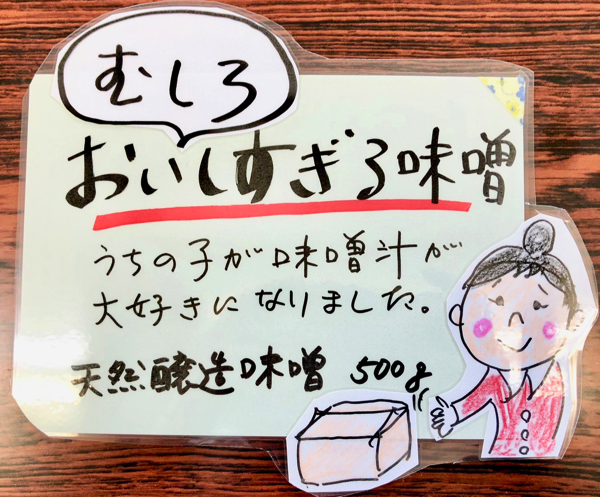 むしろ
おいしすぎる味噌
うちの子が味噌汁が
大好きになりました。
天然醸造味噌 500g